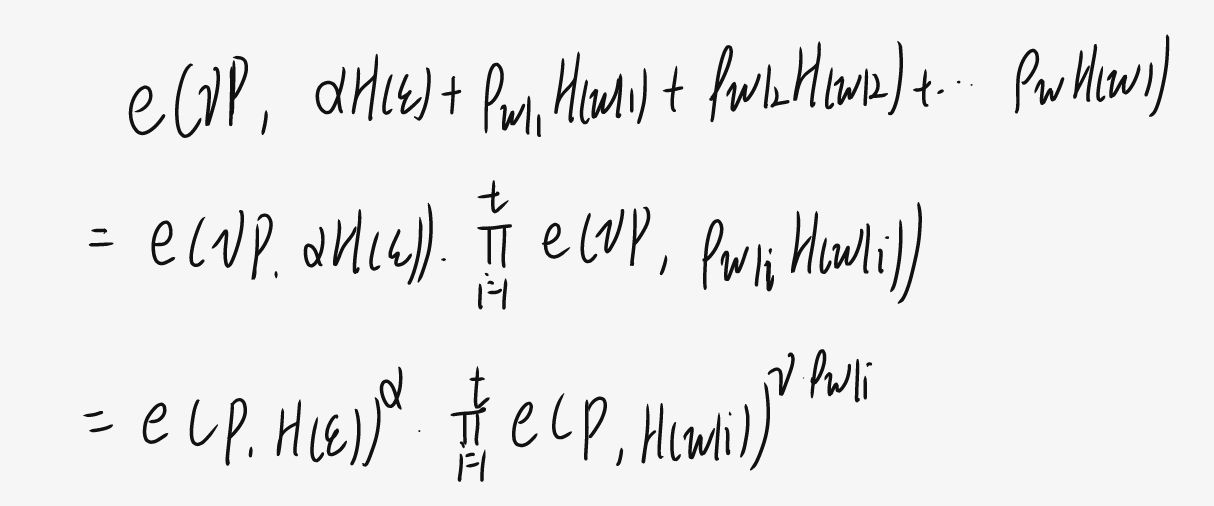 e(νP, αH(ε) + ρ_{w|_1} H(w|_1) + ρ_{w|_2} H(w|_2) + ... ρ_w H(w))
= e(νP. αH(ε)) · ∏_{i=1}^{t} e(νP, ρ_{w|_i} H(w|_i))
= e(P. H(ε))^α · ∏_{i=1}^{t} e(P, H(w|_i))^{ν·ρ_{w|_i}}